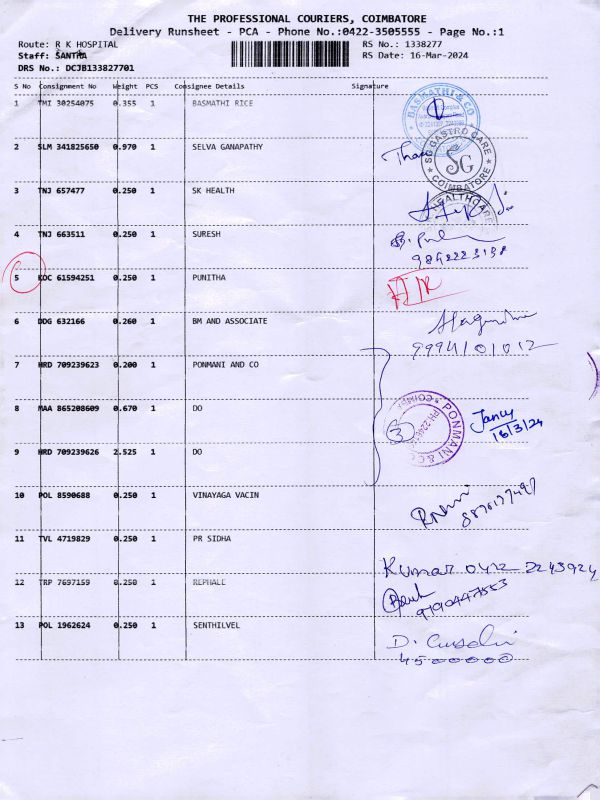 THE PROFESSIONAL COURIERS, COIMBATORE
Delivery Runsheet - PCA - Phone No.:0422-3505555 - Page No.:1
Route: R K HOSPITAL RS No.: 1338277
Staff: SANTHA RS Date: 16-Mar-2024
DRS No.: DCJB133827701
S No Consignment No Weight PCS Consignee Details Signature
1 TMI 30254075 0.355 1 BASMATHI RICE
BASMATHI & CO
2 SLM 341825650 0.970 1 SELVA GANAPATHY
SG GASTRO CARE
SG
COIMBATORE
3 TNJ 657477 0.250 1 SK HEALTH
HEALTHCARE
4 TNJ 663511 0.250 1 SURESH
9842223138
5 KOC 61594251 0.250 1 PUNITHA
6 DDG 632166 0.260 1 BM AND ASSOCIATE
9994101012
7 HRD 709239623 0.200 1 PONMANI AND CO
8 MAA 865208609 0.670 1 DO
PONMANI & CO
3
Jancy
16/3/24
9 HRD 709239626 2.525 1 DO
10 POL 8590688 0.250 1 VINAYAGA VACIN
11 TVL 4719829 0.250 1 PR SIDHA
Kumar 0422 2243924
12 TRP 7697159 0.250 1 REPHALE
9190447553
13 POL 1962624 0.250 1 SENTHILVEL
4500000